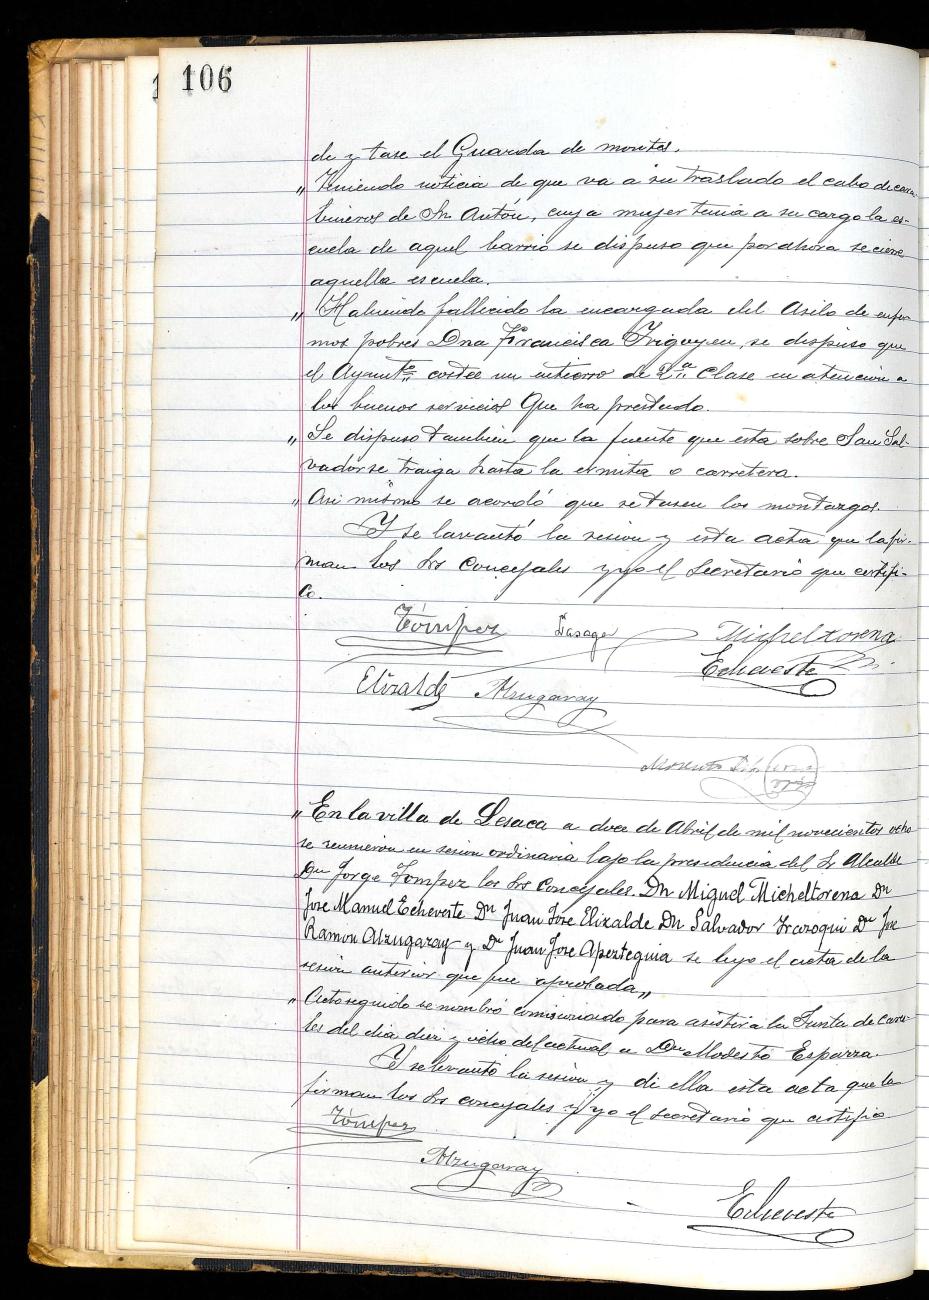 106
de y tase el Guarda de montes.
„ Teniendo noticia de que va a su traslado el cabo de cara-
bineros de Sn Antón, cuya mujer tenia a su cargo la es-
cuela de aquel barrio se dispuso que por ahora se cierre
aquella escuela.
„ Habiendo fallecido la encargada del Asilo de enfer-
mos pobres Dna Francisca Yrigoyen, se dispuso que
el Ayuntº costee un entierro de 2ª Clase en atencion a
los buenos servicios Que ha prestado.
„ Se dispuso tambien que la fuente que esta sobre San Sal-
vador se traiga hasta la ermita o carretera.
„ Asi mismo se acordó que se tasen los montazgos.
Y se lavantó la sesion y esta acta que la fir-
man los Srs Concejales y yo el Secretario que certifi-
co.
Tómpez Lasaga Micheltorena
Echeveste
Elizalde Alzugaray
„ En la villa de Lesaca a doce de Abril de mil novecientos ocho
se reunieron en sesion ordinaria bajo la presidencia del Sr Alcalde
Dn Jorge Tompez los Srs Concejales. Dn Miguel Micheltorena Dn
Jose Manuel Echeveste Dn Juan Jose Elizalde Dn Salvador Yrazoqui Dn Jose
Ramon Alzugaray y Dn Juan Jose Apeztequia se leyo el acta de la
sesion anterior que fue aprobada„
„ Acto seguido se nombró comisionado para asistir a la Junta de
del dia diez y ocho del actual a Dn Modesto Esparza.
Y se levantó la sesion y di ella esta acta que la
firman los Srs concejales y yo el secretario que certifico
Tómpez
Alzugaray
Echeveste